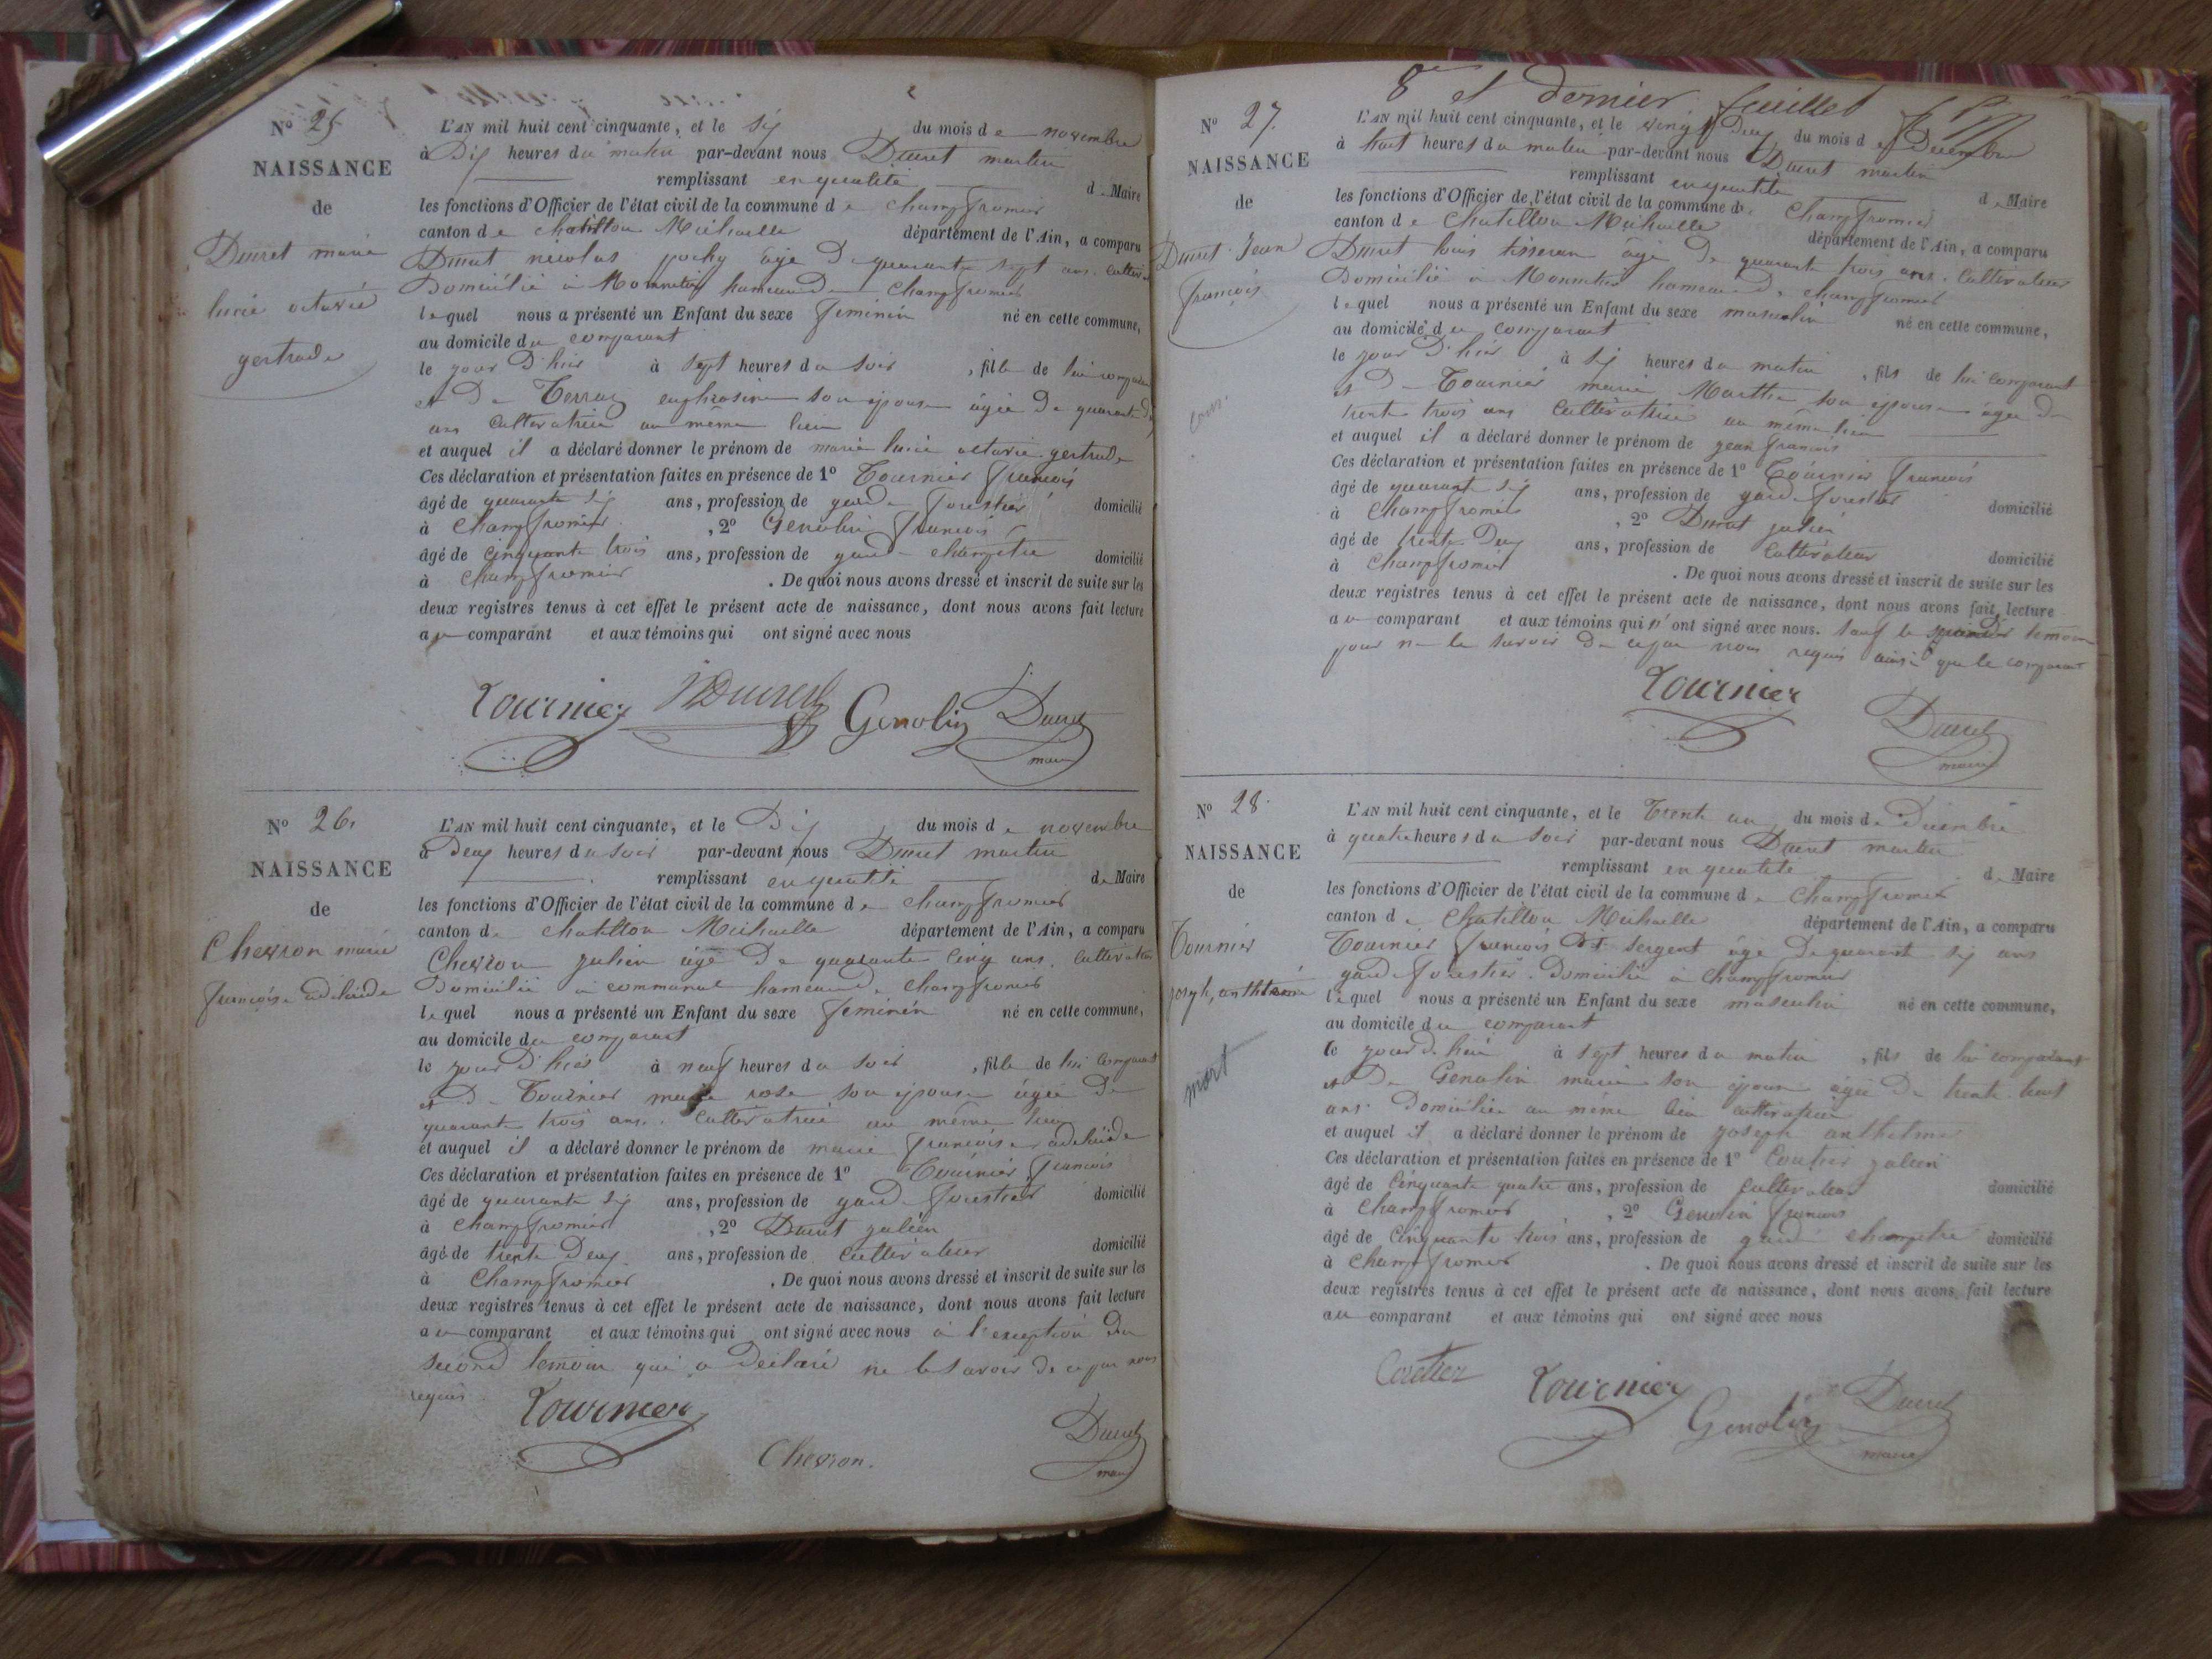 N° 25
NAISSANCE
de
Ducret marie
lucie octavie
gertrude
L'AN mil huit cent cinquante, et le six du mois de novembre
à Dix heures du matin par-devant nous Ducret martin
remplissant en qualité de Maire
les fonctions d'Officier de l'état civil de la commune de Champfromier
canton de Chatillon Michaille département de l'Ain, a comparu
Ducret nicolas pochy âgé De quarante sept ans. cultivateur
Domicilié à Monnetier hameau de Champfromier
lequel nous a présenté un Enfant du sexe feminin né en cette commune,
au domicile du comparant
le jour D'hier à sept heures du soir, fille de lui comparant
et De Terraz euphrosine son épouse âgée De quarante
ans Cultivatrice au même lieu
et auquel il a déclaré donner le prénom de marie lucie octavie gertrude
Ces déclaration et présentation faites en présence de 1° Tournier françois
âgé de quarante six ans, profession de garde forestier domicilié
à Champfromier, 2° Genolin françois
âgé de cinquante trois ans, profession de garde champêtre domicilié
à Champfromier. De quoi nous avons dressé et inscrit de suite sur les
deux registres tenus à cet effet le présent acte de naissance, dont nous avons fait lecture
au comparant et aux témoins qui ont signé avec nous
Tournier NDucret Genolin Ducret
maire
N° 26.
NAISSANCE
de
Chevron marie
françoise adélaide
L'AN mil huit cent cinquante, et le Dix du mois de novembre
à Deux heures du soir par-devant nous Ducret martin
remplissant en qualité de Maire
les fonctions d'Officier de l'état civil de la commune de Champfromier
canton de Chatillon Michaille département de l'Ain, a comparu
Chevron julien âgé De quarante cinq ans. cultivateur
Domicilié à communal hameau de Champfromier
lequel nous a présenté un Enfant du sexe feminin né en cette commune,
au domicile du comparant
le jour D'hier à neuf heures du soir, fille de lui comparant
et De Tournier marie rose son épouse âgée De
quarante trois ans. Cultivatrice au même lieu
et auquel il a déclaré donner le prénom de marie françoise adelaïde
Ces déclaration et présentation faites en présence de 1° Tournier françois
âgé de quarante six ans, profession de garde forestier domicilié
à Champfromier, 2° Ducret julien
âgé de trente Deux ans, profession de cultivateur domicilié
à Champfromier. De quoi nous avons dressé et inscrit de suite sur les
deux registres tenus à cet effet le présent acte de naissance, dont nous avons fait lecture
au comparant et aux témoins qui ont signé avec nous à l'exception Du
second temoin qui a Déclaré ne le savoir de ce par nous
requis.
Tournier
Chevron. Ducret
maire
8e et dernier feuillet
N° 27.
NAISSANCE
de
Ducret Jean
françois
L'AN mil huit cent cinquante, et le vingt Deux du mois de Décembre
à huit heures du matin par-devant nous Ducret martin
remplissant en qualité de Maire
les fonctions d'Officier de l'état civil de la commune de Champfromier
canton de Chatillon Michaille département de l'Ain, a comparu
Ducret louis tisseran âgé De quarante trois ans. Cultivateur
Domicilié à Monnetier hameau de Champfromier
lequel nous a présenté un Enfant du sexe masculin né en cette commune,
au domicile du comparant
le jour D'hier à six heures du matin, fils de lui comparant
et De Tournier marie Marthe son épouse âgée De
trente trois ans Cultivatrice au même lieu
et auquel il a déclaré donner le prénom de jean françois
Ces déclaration et présentation faites en présence de 1° Tournier françois
âgé de quarante six ans, profession de garde forestier domicilié
à Champfromier, 2° Ducret julien
âgé de trente Deux ans, profession de Cultivateur domicilié
à Champfromier. De quoi nous avons dressé et inscrit de suite sur les
deux registres tenus à cet effet le présent acte de naissance, dont nous avons fait lecture
au comparant et aux témoins qui n'ont signé avec nous. sauf le premier témoin
pour ne le savoir De ce par nous requis ainsi que le comparant
Tournier
Ducret
maire
N° 28.
NAISSANCE
de
Tournier
joseph, anthelme
mort
L'AN mil huit cent cinquante, et le Trente un du mois de Décembre
à quatre heures du soir par-devant nous Ducret martin
remplissant en qualité de Maire
les fonctions d'Officier de l'état civil de la commune de Champfromier
canton de Chatillon Michaille département de l'Ain, a comparu
Tournier françois dit sergent âgé De quarante six ans
garde forestier. Domicilié à Champfromier
lequel nous a présenté un Enfant du sexe masculin né en cette commune,
au domicile du comparant
le jour d'hier à sept heures du matin, fils de lui comparant
et De Genolin marie son épouse âgée De trente huit
ans Domiciliée au même lieu cultivatrice
et auquel il a déclaré donner le prénom de joseph anthelme
Ces déclaration et présentation faites en présence de 1° Coutier julien
âgé de Cinquante quatre ans, profession de cultivateur domicilié
à Champfromier, 2° Genolin françois
âgé de Cinquante trois ans, profession de garde champêtre domicilié
à Champfromier. De quoi nous avons dressé et inscrit de suite sur les
deux registres tenus à cet effet le présent acte de naissance, dont nous avons fait lecture
au comparant et aux témoins qui ont signé avec nous
Coutier Tournier Genolin Ducret
maire